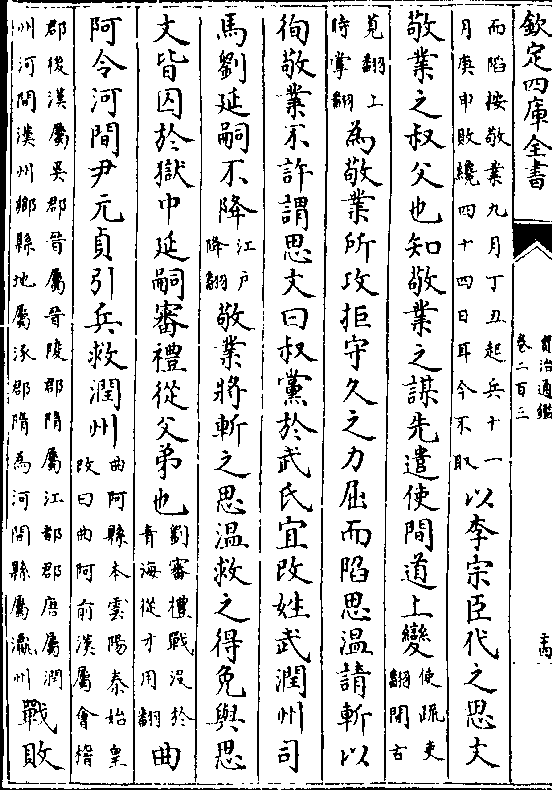 欽定四庫全書
資治通鑑
卷二百三
而陷按敬業九月丁丑起兵十一
月庚申敗纔四十四日耳今不取
以李宗臣代之思文
敬業之叔父也知敬業之謀先遣使間道上變
使疏吏
翻間古
莧翻上
時掌翻
為敬業所攻拒守久之力屈而陷思溫請斬以
徇敬業不許謂思文曰叔黨於武氏宜改姓武潤州司
馬劉延嗣不降
降江戶
降翻
敬業將斬之思溫救之得免與思
文皆囚於獄中延嗣審禮從父弟也
劉審禮戰沒於
青海從才用翻
曲
阿令河間尹元貞引兵救潤州
曲阿縣本雲陽秦始皇
改曰曲阿前漢屬會稽
郡後漢屬吳郡晉屬晉陵郡隋屬江都郡唐屬潤
州河間漢州鄉縣地屬涿郡隋為河間縣屬瀛州
戰敗